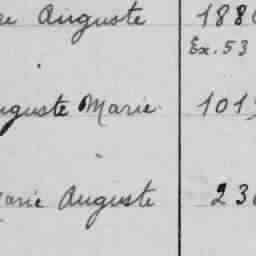 Auguste 188
Ex. 53
Auguste Marie 101
Marie Auguste 23